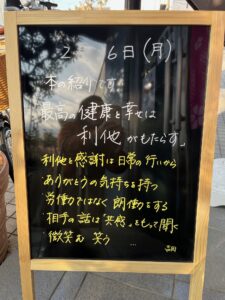 2 6日(月)
本の紹介です
最高の健康と幸せは
利他がもたらす。
利他と感謝は日常の行いから
ありがとうの気持ちを持つ
労働ではなく 朗働をする
相手の話は"共感"をもって聞く
微笑む 笑う …